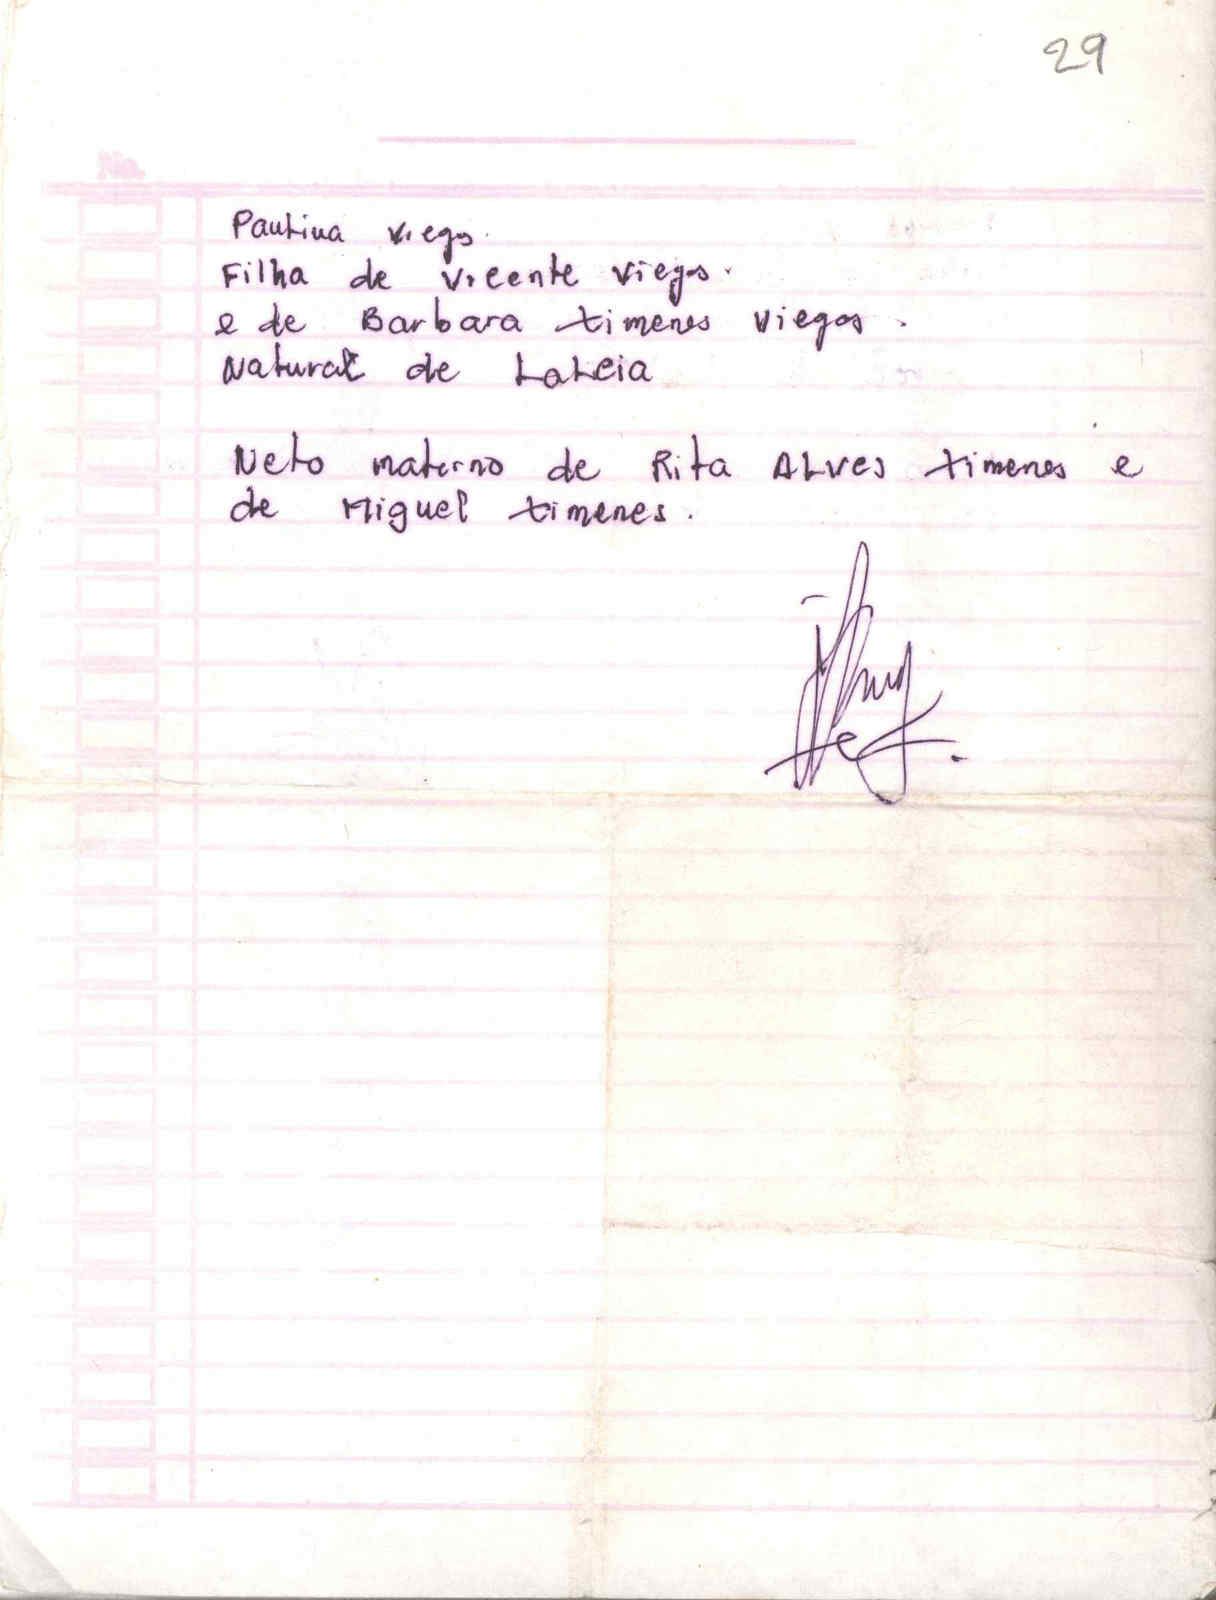 29
Paulina Viegas.
Filha de Vicente Viegas.
e de Barbara Ximenes Viegas.
Natural de Laleia
Neto materno de Rita Alves Ximenes e
de Miguel Ximenes.